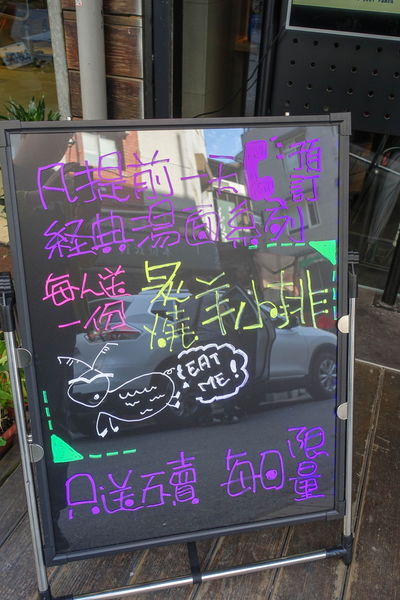 凡提前一天預訂
經典湯面系列
每人送
一個
炙燒羊小排
EAT
ME!
只送不賣 每日限量